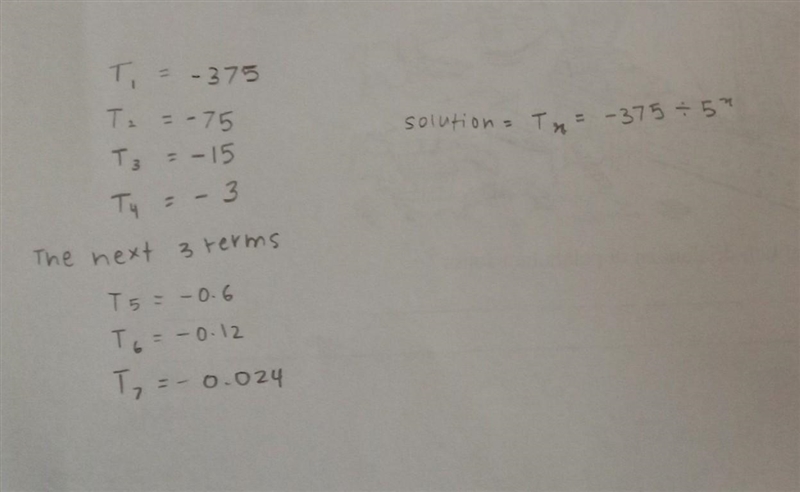 T₁ = -375
T₂ = -75
T₃ = -15
T₄ = -3
The next 3 terms
T₅ = -0.6
T₆ = -0.12
T₇ = -0.024
solution = Tₙ = -375 ÷ 5ⁿ